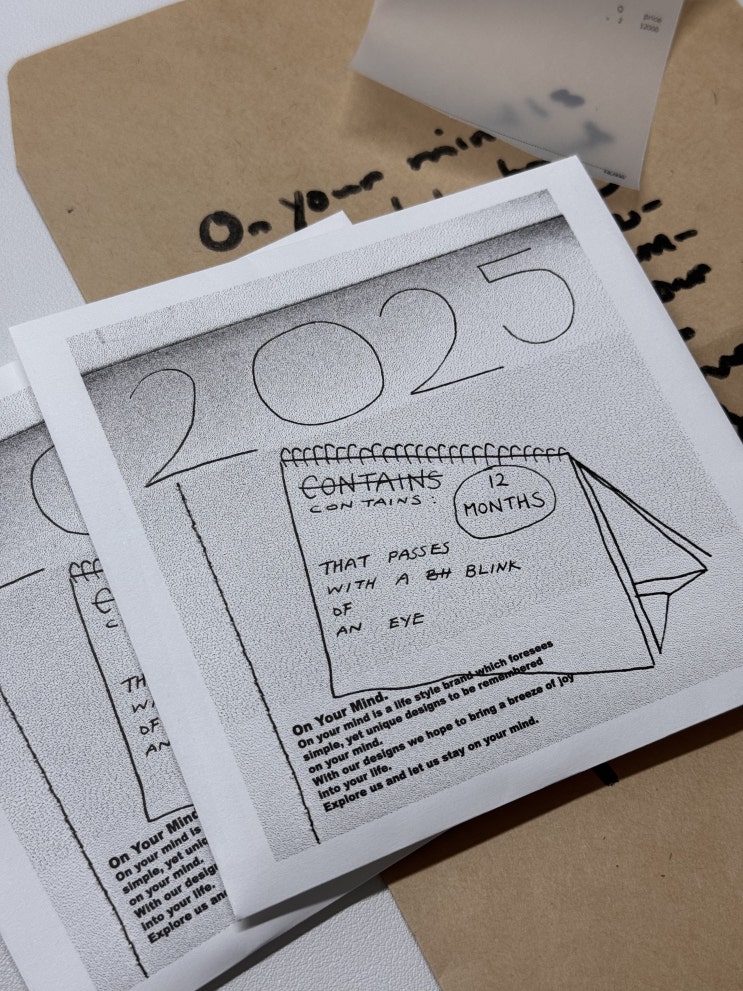 price
12000
On your min
2025
CONTAINS
CONTAINS:
12
MONTHS
THAT PASSES
WITH A BH BLINK
OF
AN EYE
On Your Mind.
On your mind is a life style brand which foresees
simple, yet unique designs to be remembered
on your mind.
With our designs we hope to bring a breeze of joy
into your life.
Explore us and let us stay on your mind.
C
TH
W
OF
AN
On Your Mind
On your mind is
simple, yet uniq
on your mind.
With our desig
into your life.
Explore us an